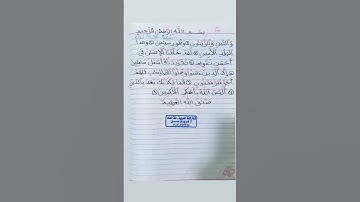 بسم الله الرحمن الرحيم
والتين والزيتون وطور سينين وهذا
البلد الأمين لقد خلقنا الإنسان في
أحسن تقويم ثم رددناه أسفل سافلين
إلا الذين آمنوا وعملوا الصالحات فلهم
أجر غير ممنون فما يكذبك بعد بالدين
أليس الله بأحكم الحاكمين
صدق الله العظيم